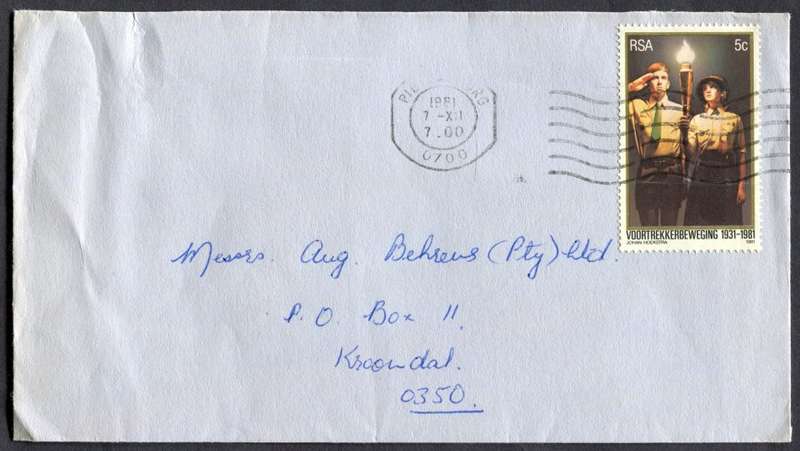 RSA 5c
1981
7 -XII
7.00
0700
VOORTREKKERBEWEGING 1931-1981
JOHAN HOEKSTRA 1981
Messrs. Aug. Behrens (Pty) Ltd.
P.O. Box 11.
Kroondal.
0350.